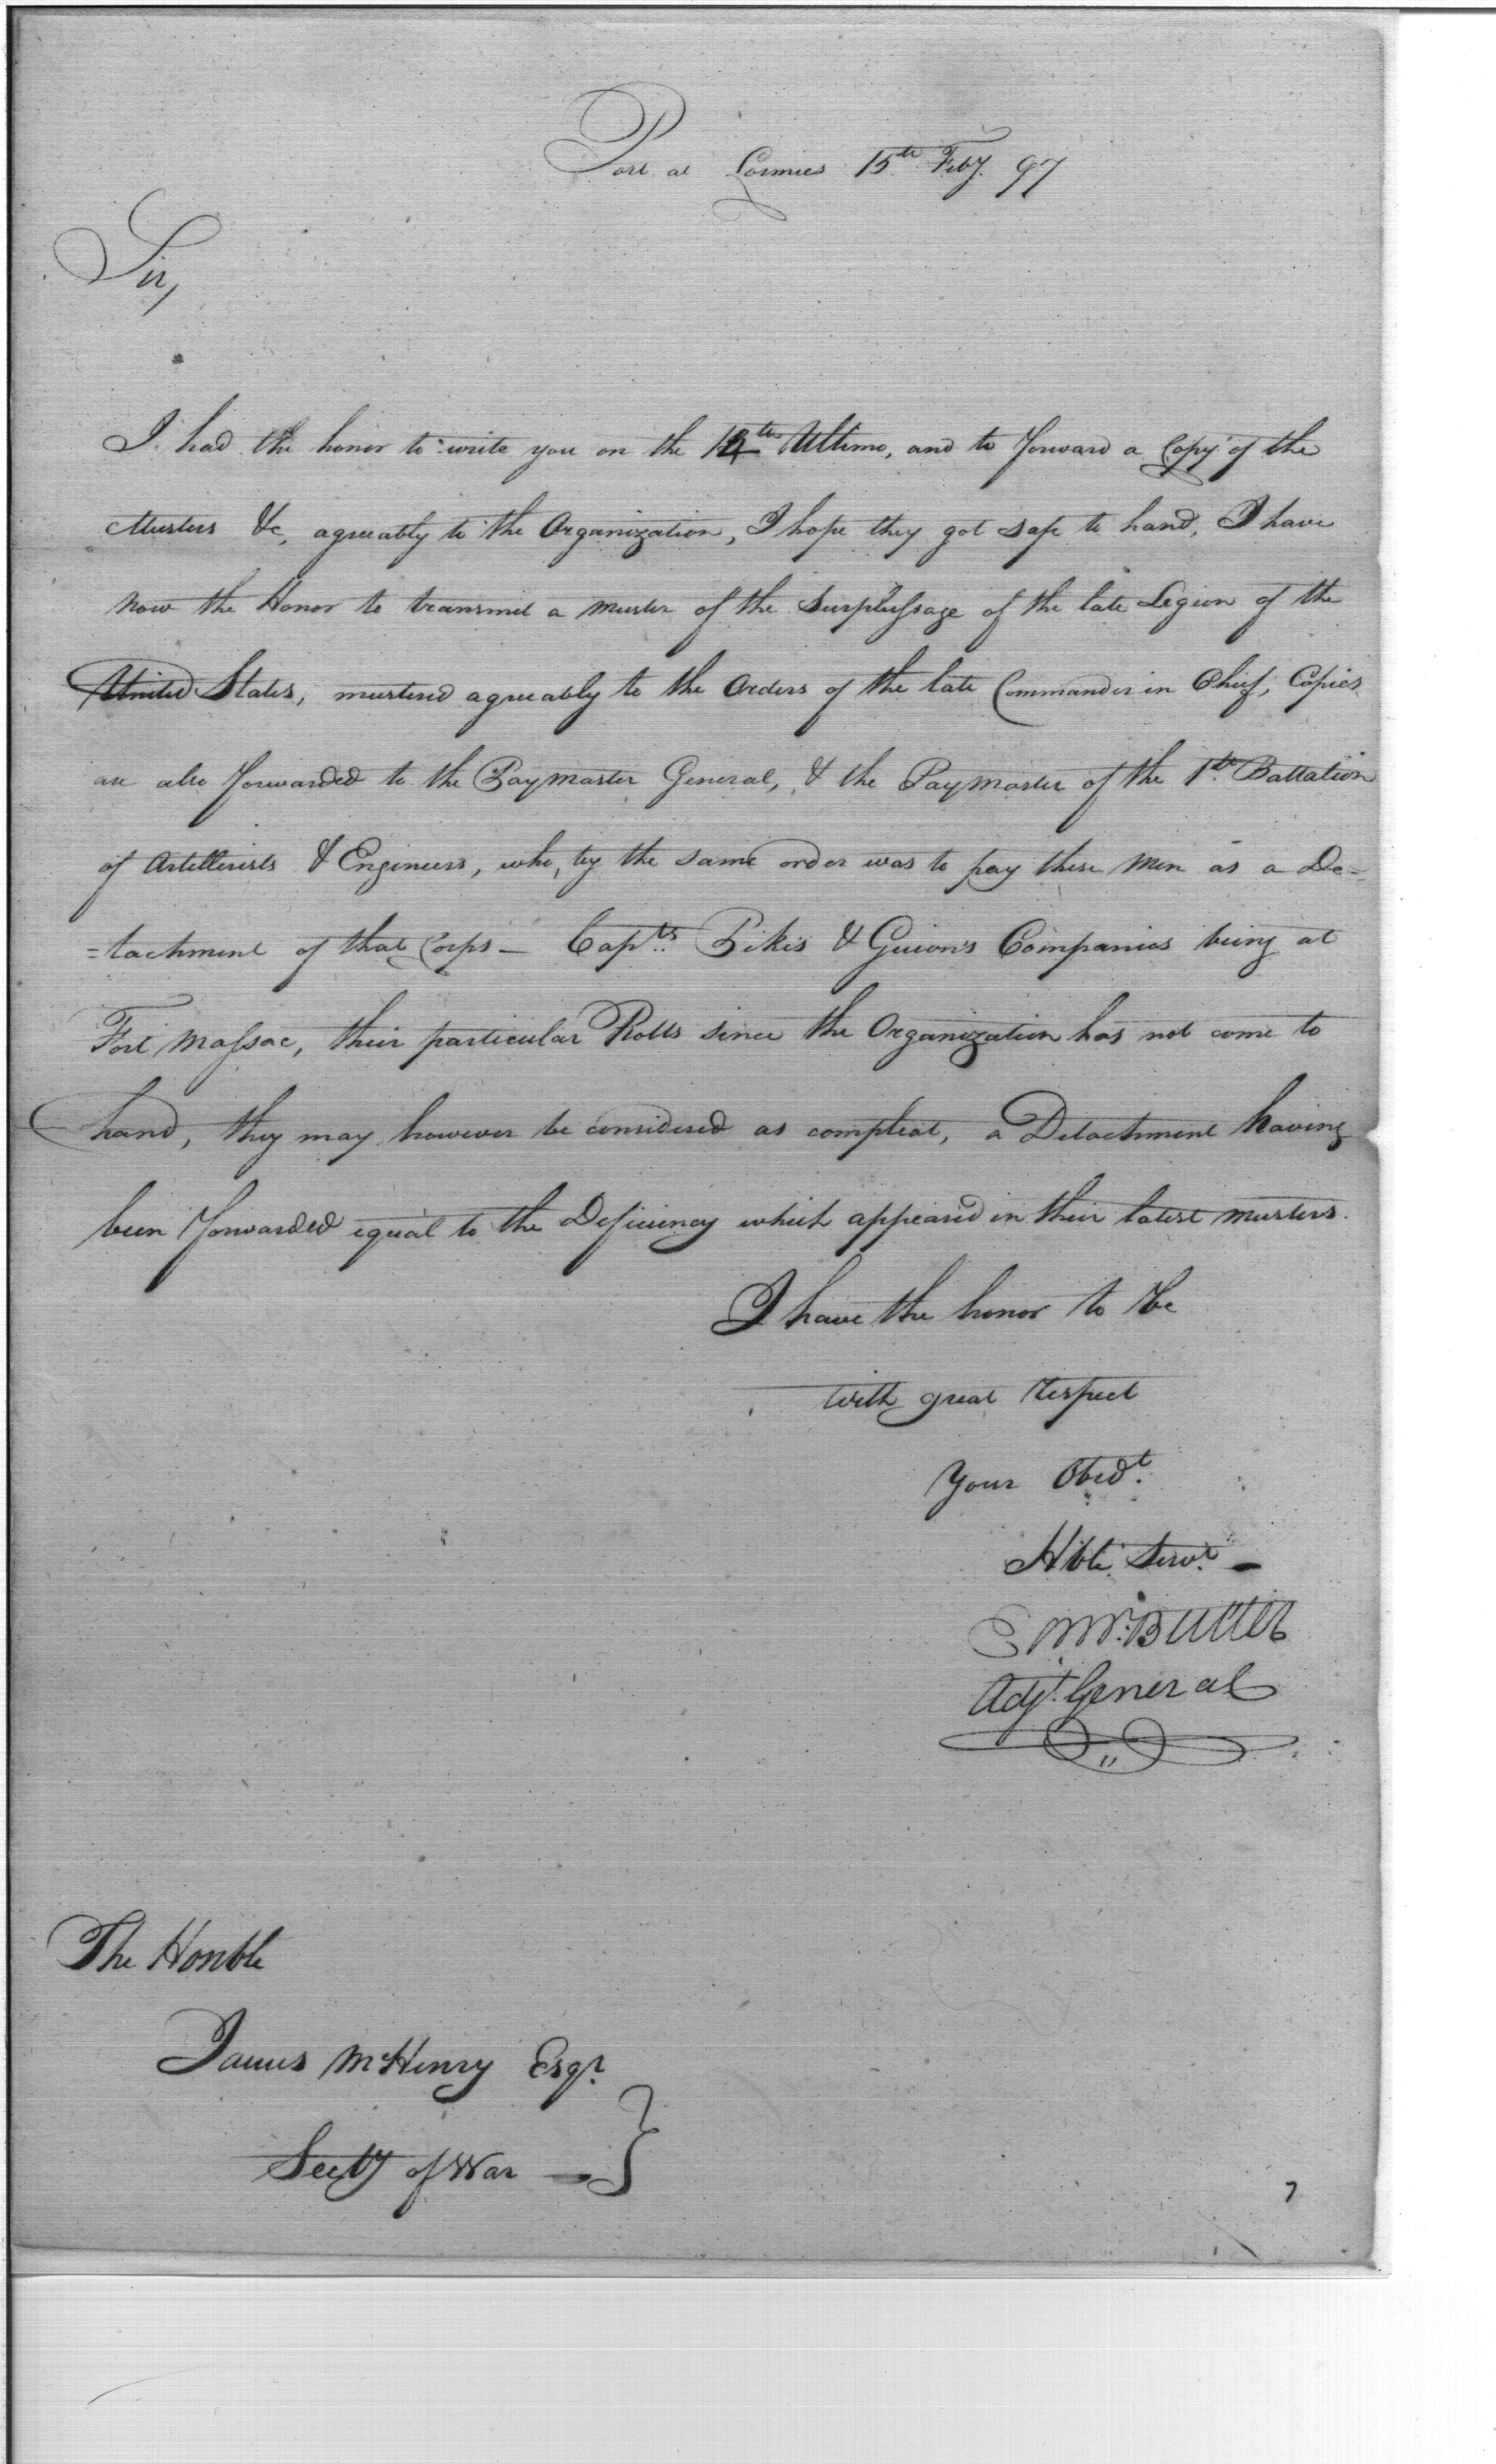 Post at Lormies 15th Feby. 97
Sir,
I had the honor to write you on the 14th Ultimo, and to forward a Copy of the
Musters &c, agreeably to the Organization, I hope they got safe to hand, I have
now the Honor to transmit a muster of the Surplussage of the late Legion of the
United States, mustered agreeably to the Orders of the late Commander in Chief, Copies
are also forwarded to the Paymaster General, & the Paymaster of the 1st Battalion
of Artillerists & Engineers, who, by the same order was to pay these men as a De=
=tachment of that Corps — Capts. Pikes & Guion's Companies being at
Fort Massac, their particular Rolls since the Organization has not come to
hand, they may however be considered as compleat, a Detachment having
been forwarded equal to the Deficiency which appeared in their latest musters.
I have the honor to be
with great respect
Your Obedt.
Hble. Servt. —
Edwd. Butler
Adjt. General
The Honble
James McHenry Esqr.
Secty of War — }
7